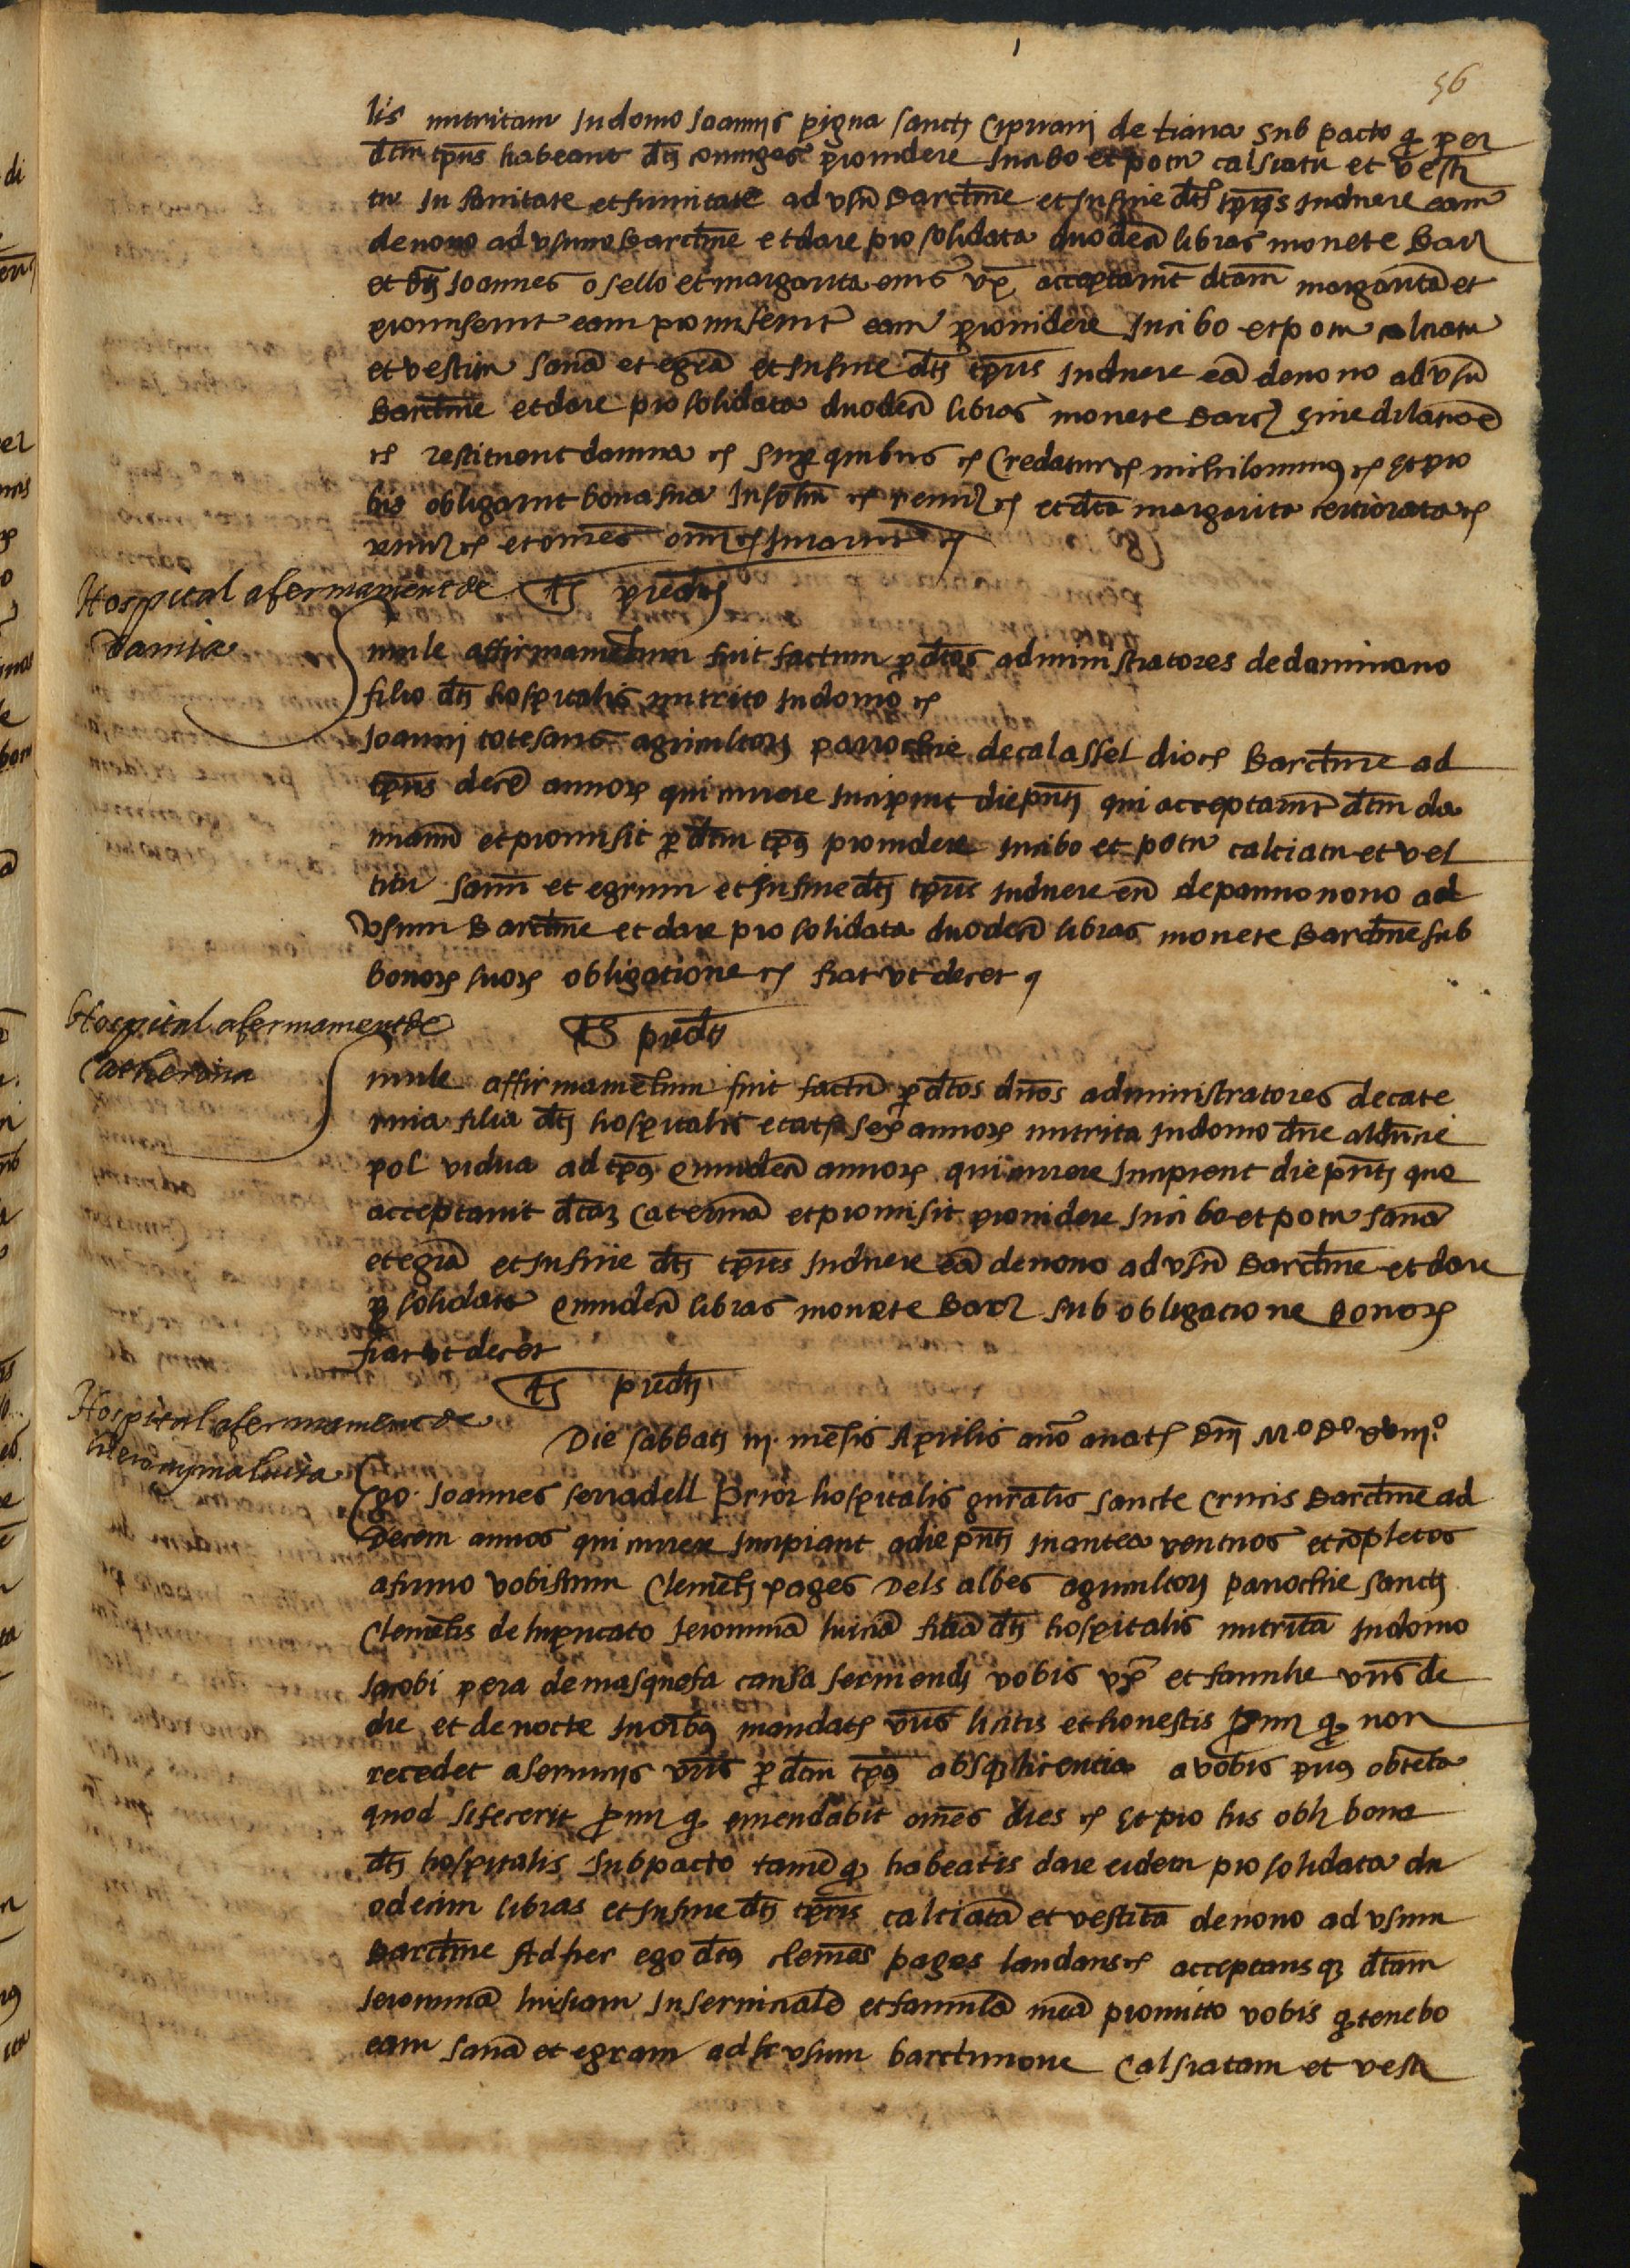 56
lis nutritam in domo Joannis pigna sancti Cipriani de tiana sub pacto q per
dctm tpus habeant dti coniuges providere in cibo et potu calsiatu et vesti
tu in sanitate et infirmitate ad usu Barctme et in fine dti tpris induere eam
de novo ad usum Barctme et dare pro solidata duodeci libras monete Bar
et dti Joannes osello et margarita eius ux acceptarut dctam margarita et
promiserunt eam promiserunt eam providere in cibo et potu calciatu
et vestitu sana et egra et in fine dti tpris induere ea de novo ad usu
Barctme et dare pro solidata duodeci libras monete Barc sine dilatioe
rc restituent damna rc super quibus rc Credatur rc nihilominus rc Et pro
his obligarut bona sua insolm rc renu rc et dcta margarita certiorata rc
renu rc et omes rc Jurarut rc
Hospital afermament de
Damia
ts predti
imile affirmametum fuit factum p dctos administratores de daminano
filio dti hospitalis nutrito in domo rc
Joanni totesaus agricultori parrochie de calassel dioc Barctme ad
tpus dece annor qui currere incipiut die pnti qui acceptavit dctm da
mianu et promisit p dctm tps providere in cibo et potu calciatu et ves
titu sanu et egrum et in fine dti tpris induere eu de panno novo ad
usum Barctme et dare pro solidata duodeci libras monete Barctme sub
bonor suor obligatione rc fiat ut decet
Hospital afermament de
Catherina
ts predti
imile affirmametum fuit factu p dctos dnos administratores de cate
rina filia dti hospitalis etatis sex annor nutrita in domo dne aldoncie
pol vidua ad tps quindeci annor qui currere incipient die pnti que
acceptavit dctaz caterina et promisit providere in cibo et potu sana
et egra et in fine dti tpris induere ea de novo ad usu Barctme et dare
p solidata quindeci libras monete Barc sub obligatione bonor
fiat ut decet
ts predti
Hospital afermament de
Hieronyma lucia
Die sabbati iij mesis Aprilis ano a nati dni Mº Dº xviiijº
Ego Joannes serradell prior hospitalis gnralis sancte Crucis Barctme ad
Decem annos qui currere incipiant a die pnti in antea venturos et copletos
afirmo vobiscum Clemeti pages Dels albes agricultori parrochie sancti
Clemetis de lupricato Jeronima lucia filia dti hospitalis nutrita in domo
Jacobi pera de masquefa causa serviendi vobis uxi et familie vris de
die et de nocte in oibus mandatis vris licitis et honestis q non
recedet a serviciis vris p dctm tps absq licentia a vobis prius obteta
quod si fecerit q emendabit omes dies rc Et pro his obli bona
dti hospitalis sub pacto tame q habeatis dare eidem pro solidata du
odecim libras et in fine dti tpris calciata et vestita de novo ad usum
Barctme Ad hec ego dctus clemes pages laudans rc acceptansq dctam
Jeronima lusiam in servicialē et famula mea promitto vobis q tenebo
eam sana et egram ad usum barctinone calsiatam et vesti